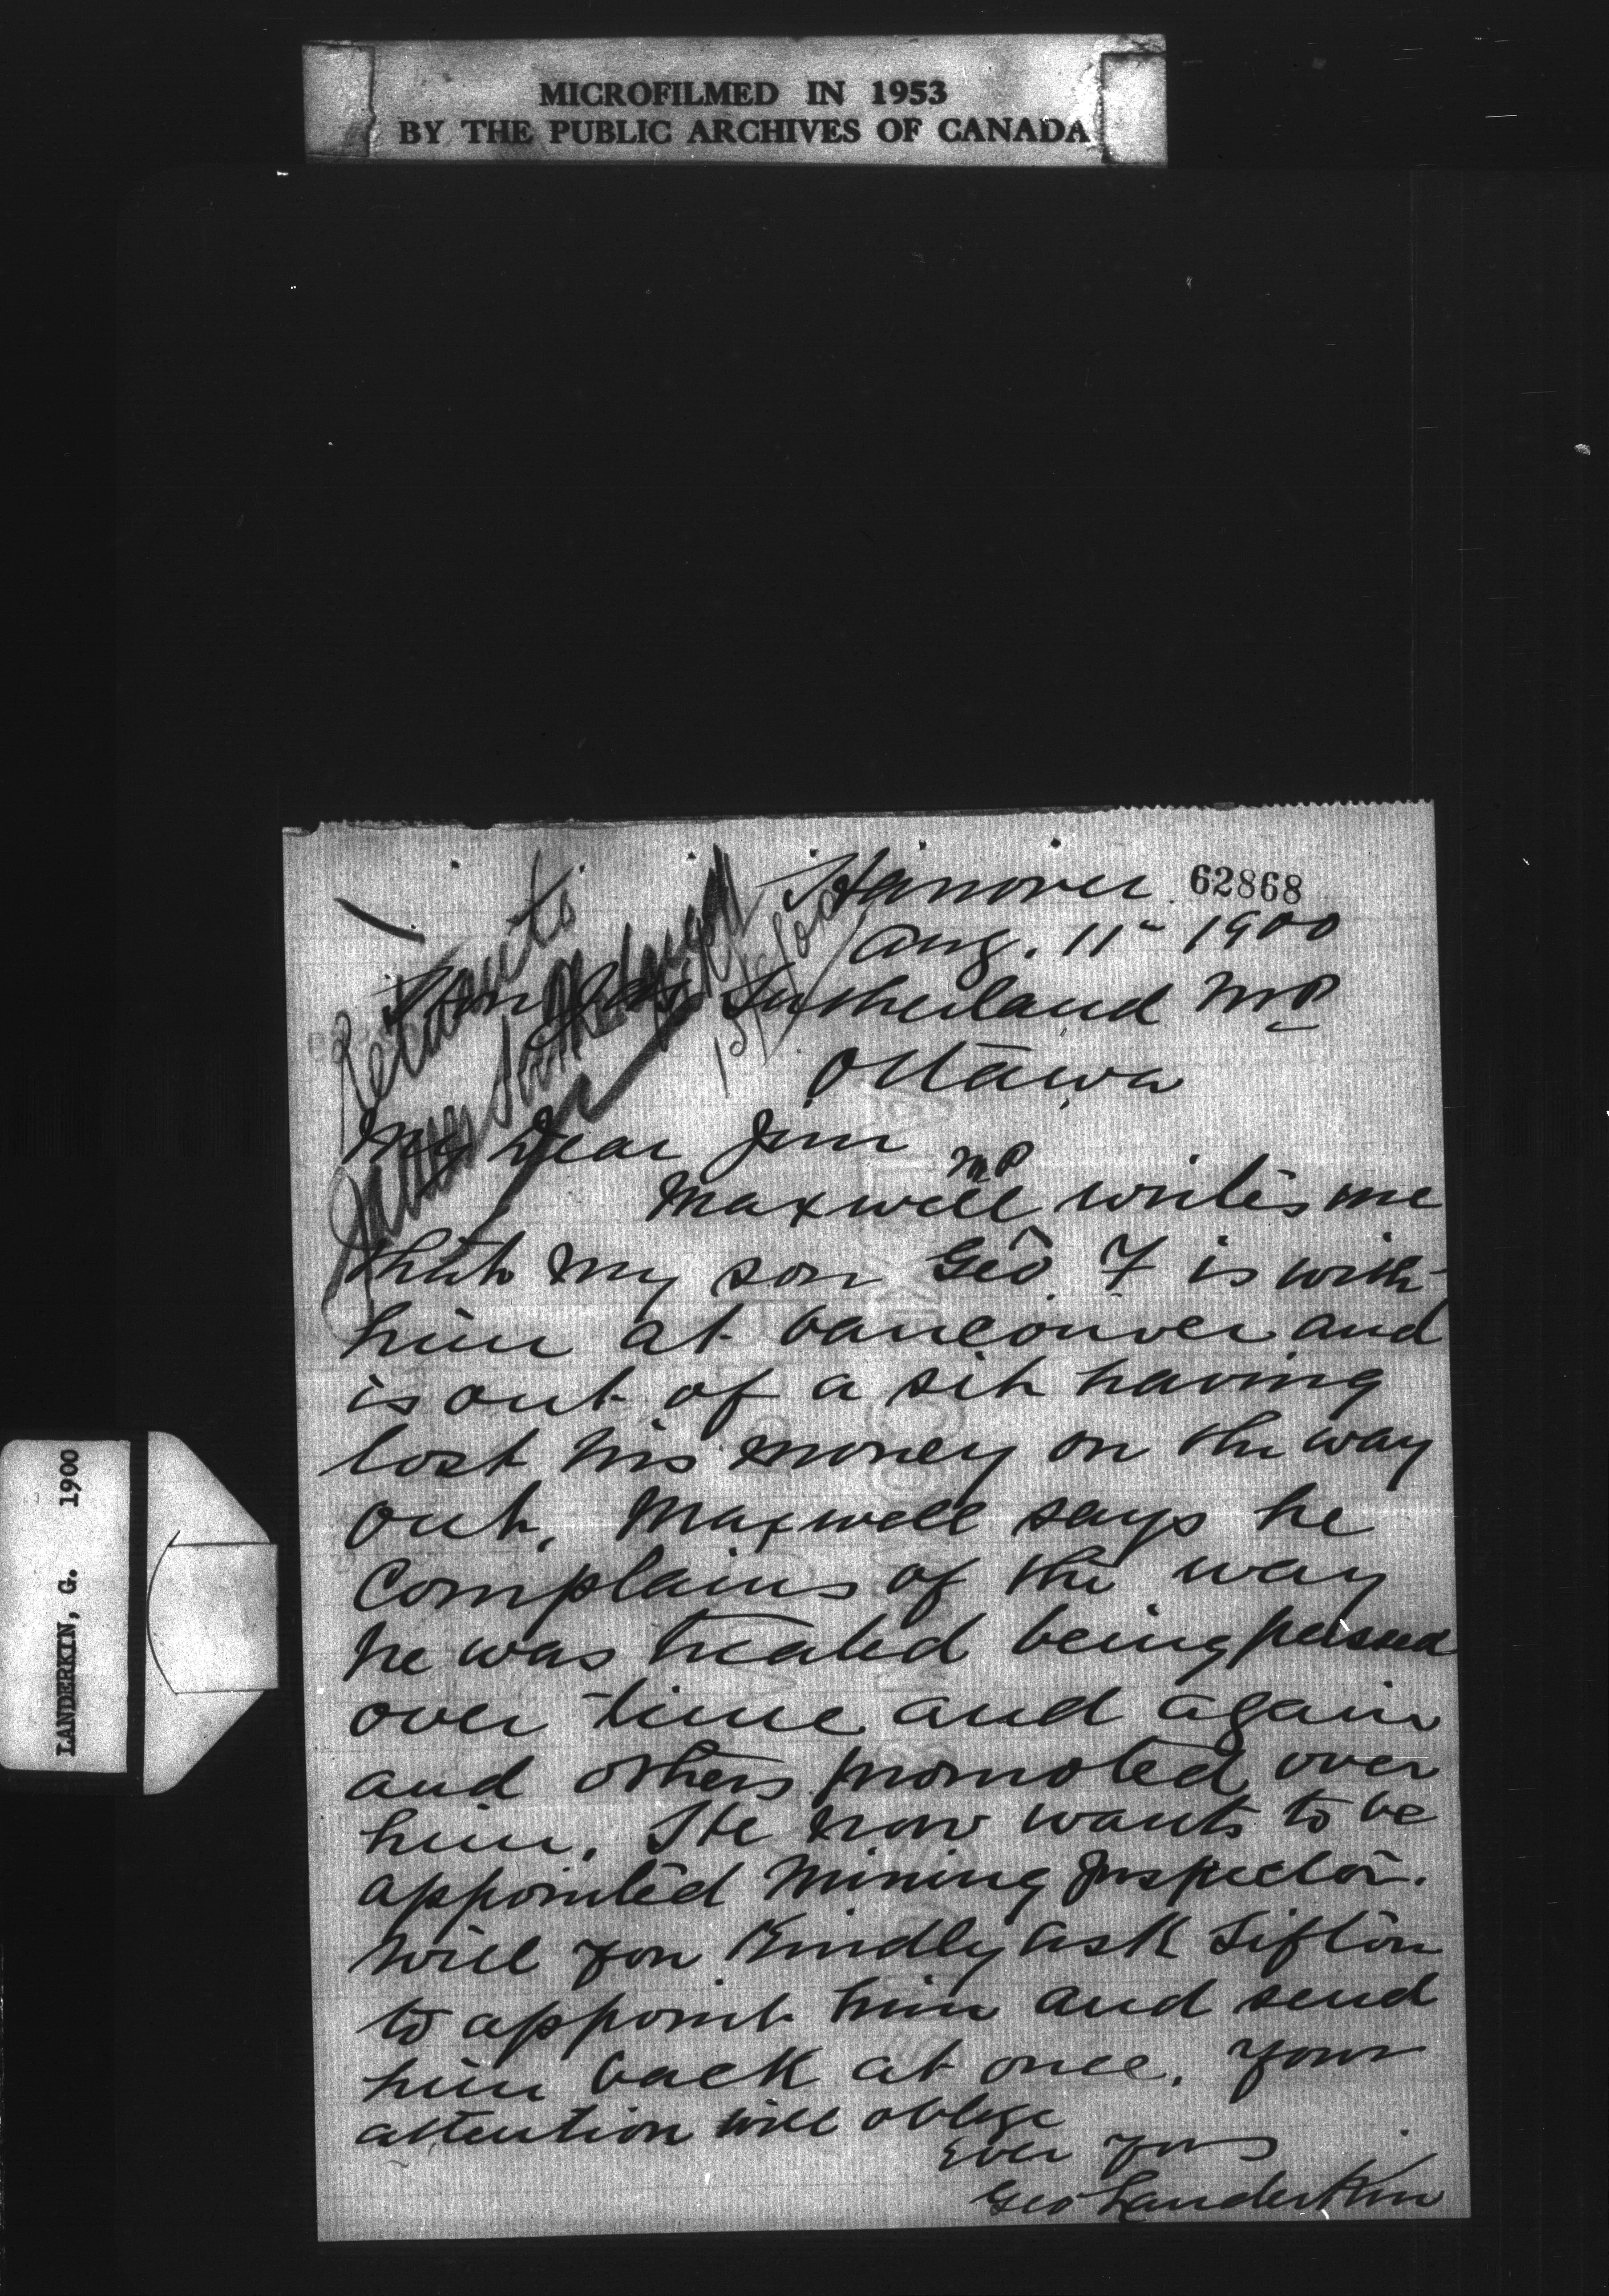 MICROFILMED IN 1953
BY THE PUBLIC ARCHIVES OF CANADA
LANDERKIN, G. 1900
62868
Hanover
Aug. 11th 1900
Return to
James Sutherland
Hon Jas. Sutherland MP
Ottawa
My Dear Jim
Maxwell MP writes me
that my son Geo F is with
him at Vancouver and
is out of a sit having
lost his money on the way
out. Maxwell says he
complains of the way
he was treated being passed
over time and again
and others promoted over
him. He now wants to be
appointed Mining Inspector.
Will you Kindly ask Sifton
to appoint him and send
him back at once. Your
attention will oblige
Ever yours
Geo Landerkin